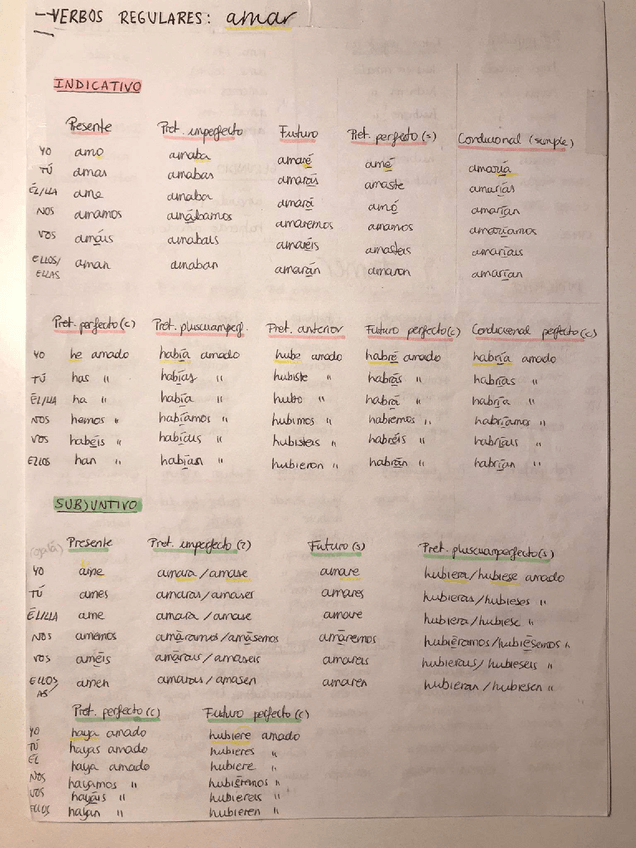 VERBOS REGULARES: amar
INDICATIVO
Presente Pret. imperfecto Futuro Pret. perfecto (s) Condicional (simple)
YO amo amaba amaré amé amaría
TÚ amas amabas amarás amaste amarías
ÉL/ELLA ame amaba amará amó amarían
NOS amamos amábamos amaremos amamos amaríamos
VOS amáis amabais amaréis amasteis amaríais
ELLOS/ELLAS aman amaban amarán amaron amarían
Pret. perfecto (c) Pret. pluscuamperf. Pret. anterior Futuro perfecto (c) Condicional perfecto (c)
YO he amado había amado hube amado habré amado habría amado
TÚ has " habías " hubiste " habrás " habrías "
ÉL/ELLA ha " había " hubo " habrá " habría "
NOS hemos " habíamos " hubimos " habremos " habríamos "
VOS habéis " habíais " hubisteis " habréis " habríais "
ELLOS han " habían " hubieron " habrán " habrían "
SUBJUNTIVO
(ojalá) Presente Pret. imperfecto (2) Futuro (s) Pret. pluscuamperfecto (s)
YO ame amara / amase amare hubiera / hubiese amado
TÚ ames amaras / amases amares hubieras / hubieses "
ÉL/ELLA ame amara / amase amare hubiera / hubiese "
NOS amemos amáramos / amásemos amáremos hubiéramos / hubiésemos "
VOS améis amarais / amaseis hubierais / hubieseis "
ELLOS/AS amen amaran / amasen amaren hubieran / hubiesen "
Pret. perfecto (c) Futuro perfecto (c)
YO haya amado hubiere amado
TÚ hayas amado hubieres "
ÉL haya amado hubiere "
NOS hayamos " hubiéremos "
VOS hayáis "
ELLOS hayan " hubieren "